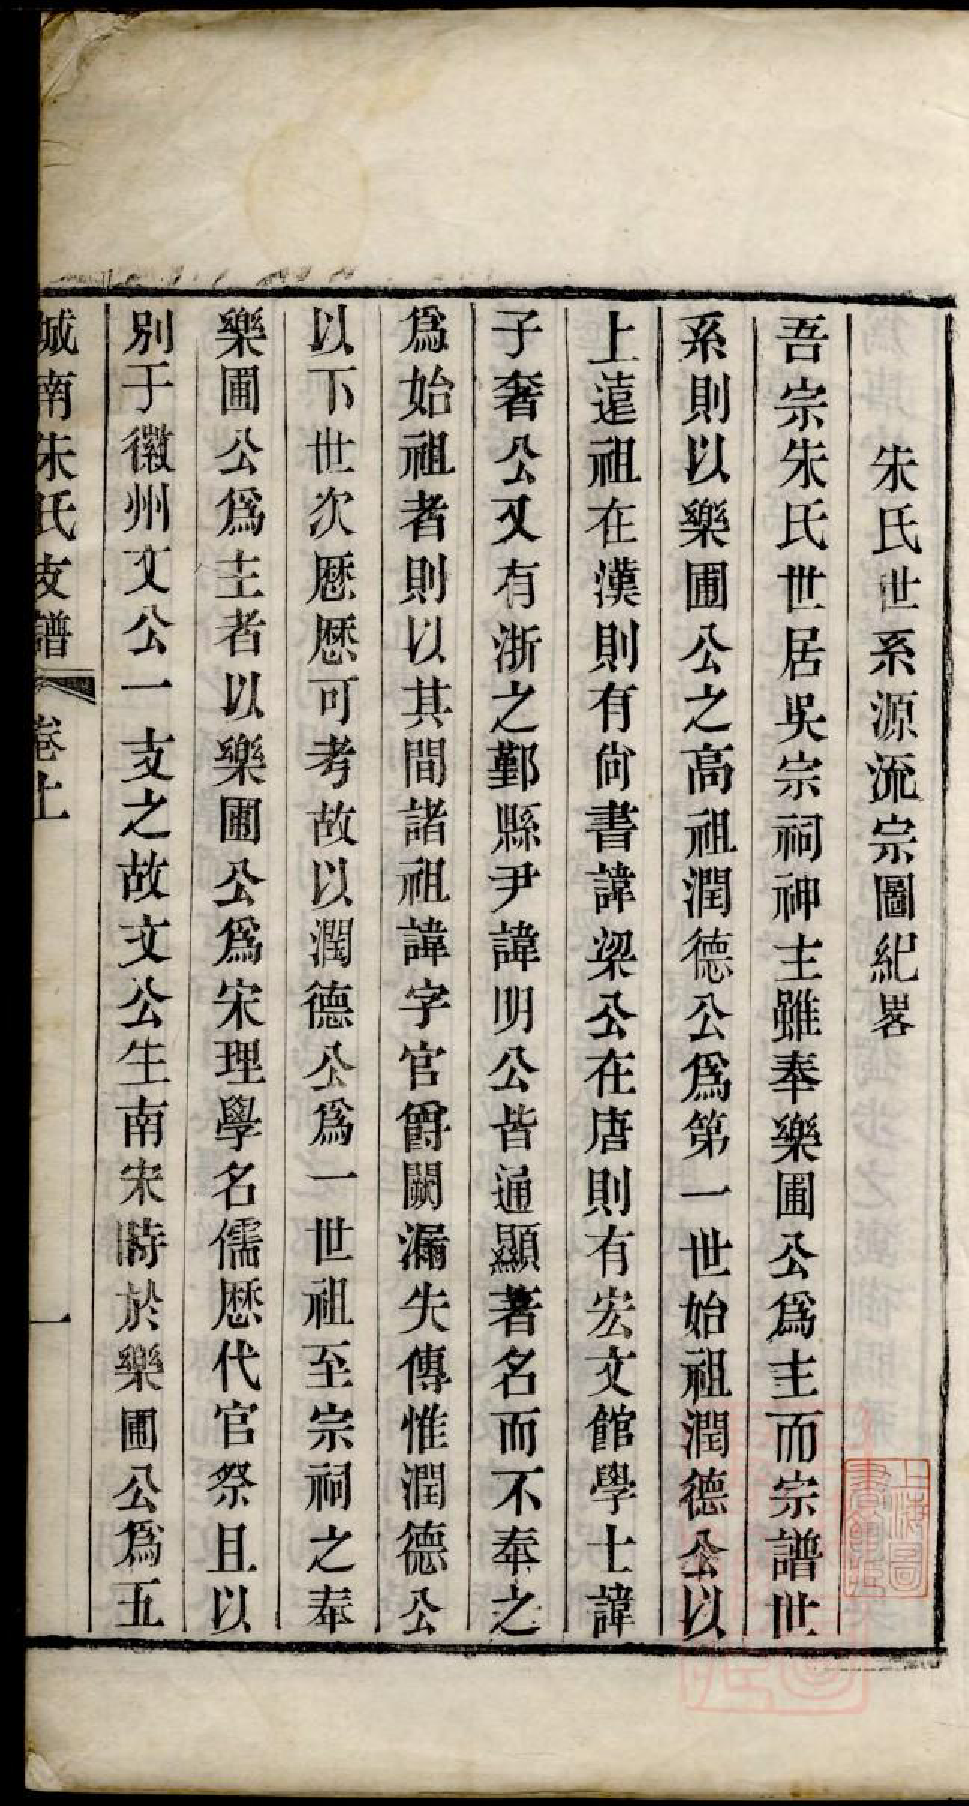 朱氏世系源流宗圖紀畧
吾宗朱氏世居吳宗祠神主雖奉樂圃公爲主而宗譜世
系則以樂圃公之高祖潤德公爲第一世始祖潤德公以
上遠祖在漢則有尙書諱梁公在唐則有宏文館學士諱
子奢公又有浙之鄞縣尹諱明公皆通顯著名而不奉之
爲始祖者則以其間諸祖諱字官爵闕漏失傳惟潤德公
以下世次歷歷可考故以潤德公爲一世祖至宗祠之奉
樂圃公爲主者以樂圃公爲宋理學名儒歷代官祭且以
別于徽州文公一支之故文公生南宋時於樂圃公爲五
城南朱氏支譜 卷上 一
上海圖書館藏